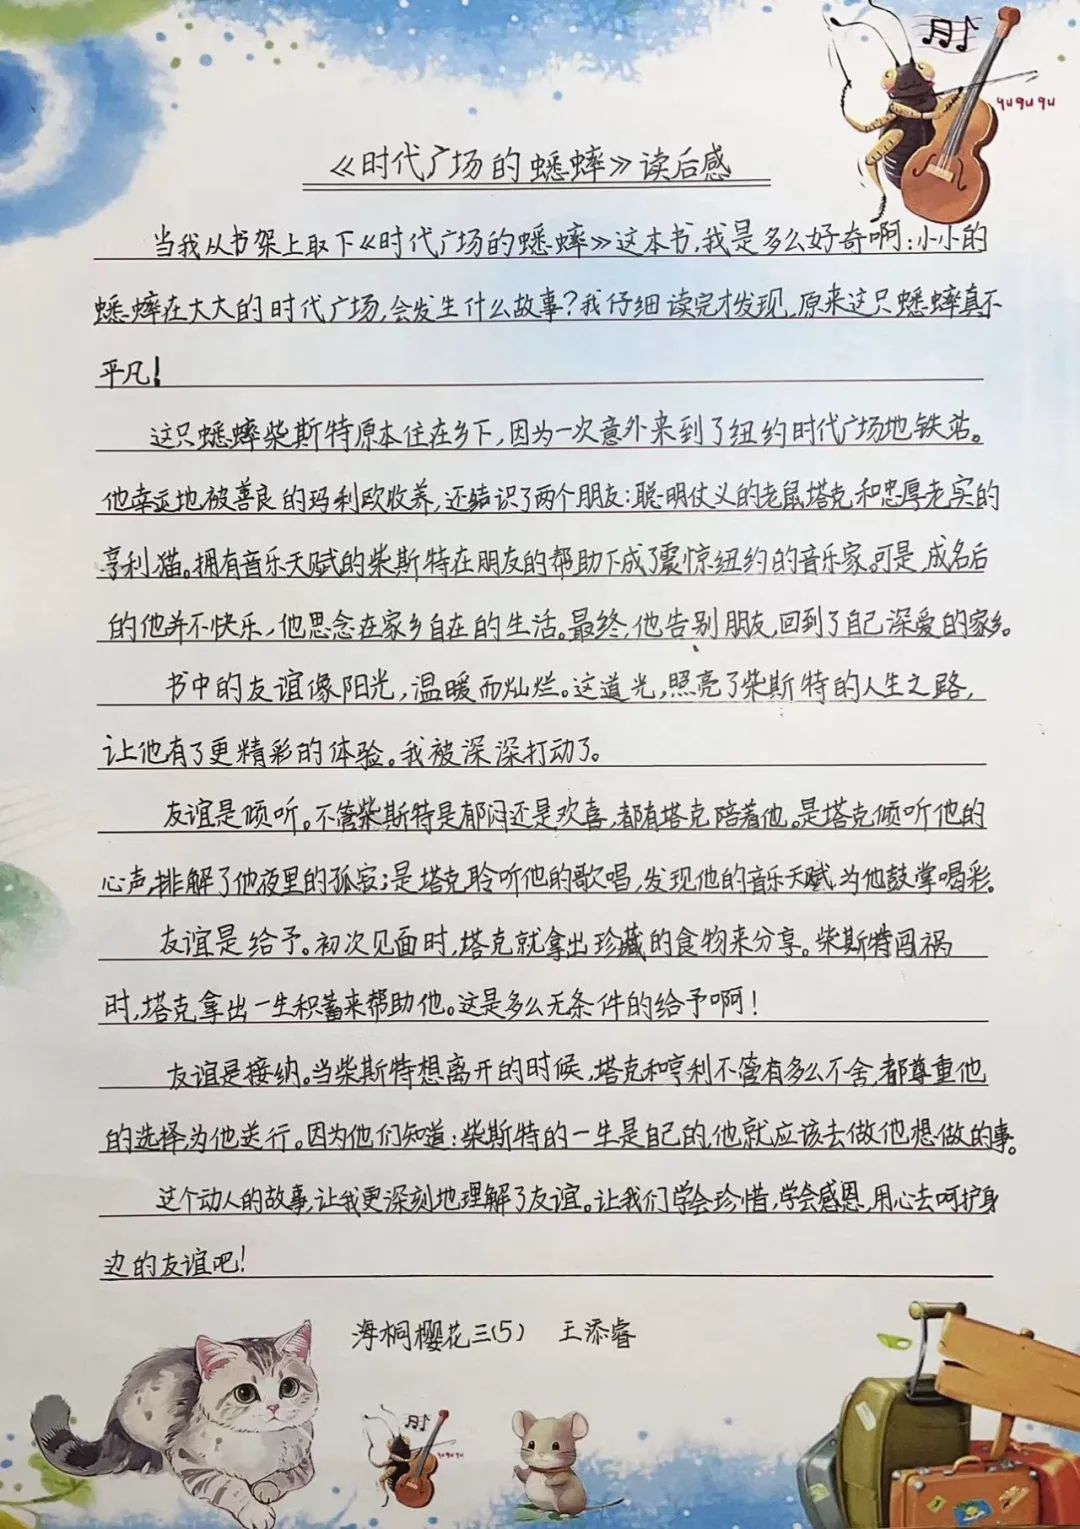 ququqqu
《时代广场的蟋蟀》读后感
当我从书架上取下《时代广场的蟋蟀》这本书,我是多么好奇啊:小小的
蟋蟀在大大的时代广场,会发生什么故事?我仔细读完才发现,原来这只蟋蟀真不
平凡!
这只蟋蟀柴斯特原本住在乡下,因为一次意外来到了纽约时代广场地铁站。
他幸运地被善良的玛利欧收养,还结识了两个朋友:聪明仗义的老鼠塔克和忠厚老实的
亨利猫。拥有音乐天赋的柴斯特在朋友的帮助下成了震惊纽约的音乐家。可是成名后
的他并不快乐,他思念在家乡自在的生活。最终,他告别朋友,回到了自己深爱的家乡。
书中的友谊像阳光,温暖而灿烂。这道光,照亮了柴斯特的人生之路,
让他有了更精彩的体验。我被深深打动了。
友谊是倾听。不管柴斯特是郁闷还是欢喜,都有塔克陪着他。是塔克倾听他的
心声,排解了他夜里的孤寂;是塔克聆听他的歌唱,发现他的音乐天赋,为他鼓掌喝彩。
友谊是给予。初次见面时,塔克就拿出珍藏的食物来分享。柴斯特闯祸
时,塔克拿出一生积蓄来帮助他。这是多么无条件的给予啊!
友谊是接纳。当柴斯特想离开的时候,塔克和亨利不管有多么不舍,都尊重他
的选择,为他送行。因为他们知道:柴斯特的一生是自己的,他就应该去做他想做的事。
这个动人的故事,让我更深刻地理解了友谊。让我们学会珍惜,学会感恩,用心去呵护身
边的友谊吧!
海桐樱花三(5) 王添睿